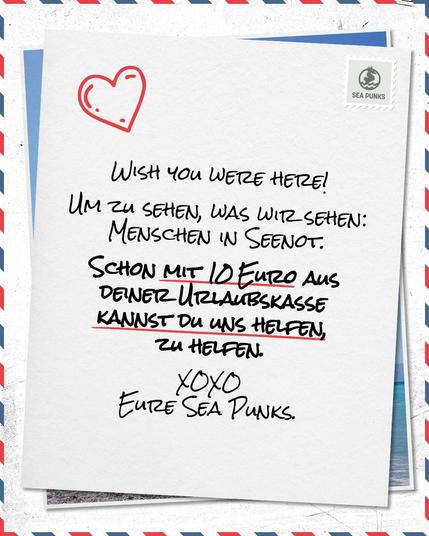 SEA PUNKS
Wish you were here!
Um zu sehen, was wir sehen:
Menschen in Seenot.
Schon mit 10 Euro aus
deiner Urlaubskasse
kannst du uns helfen,
zu helfen.
XOXO
Eure Sea Punks.